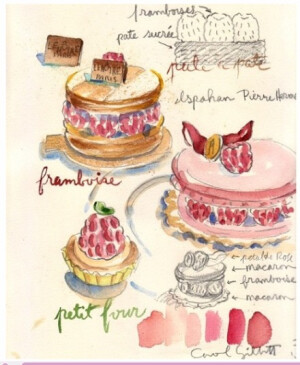 framboises
pate sucrée
PARIS
Ispahan Pierre Hermé
framboise
petale Rose
macaron
framboise
macaron
petit four
Carol Gillott